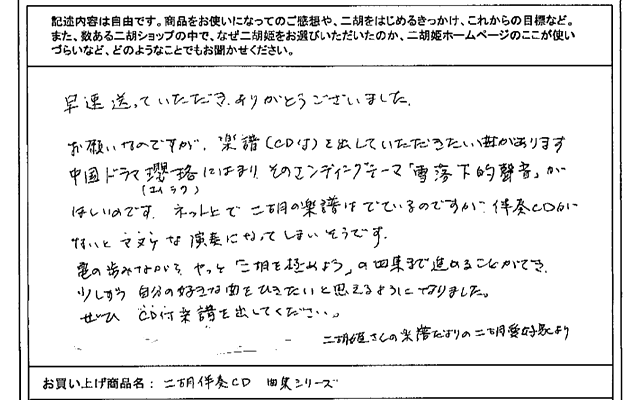 記述内容は自由です。商品をお使いになってのご感想や、二胡をはじめるきっかけ、これからの目標など。
また、数ある二胡ショップの中で、なぜ二胡姫をお選びいただいたのか、二胡姫ホームページのここが使い
づらいなど、どのようなことでもお聞かせください。
早速送っていただき、ありがとうございました。
お願いなのですが、楽譜(CD付)を出していただきたい曲があります
中国ドラマ瓔珞にはまり、そのエンディングテーマ「雪落下的聲音」が
(エイラク)
ほしいのです。ネット上で二胡の楽譜はでているのですが、伴奏CDが
ないとマヌケな演奏になってしまいそうです。
亀の歩みながら、やっと「二胡を極めよう」の曲集まで進めることができ、
少しずつ自分の好きな曲をひきたいと思えるようになりました。
ぜひ CD付楽譜を出してください。
二胡姫さんの楽譜だよりの二胡愛好家より
お買い上げ商品名: 二胡伴奏CD 曲集シリーズ